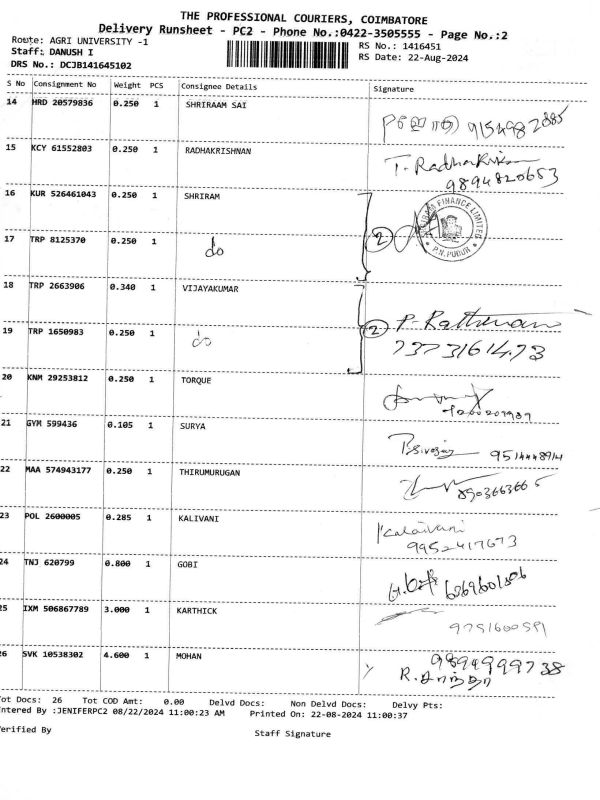 THE PROFESSIONAL COURIERS, COIMBATORE
Delivery Runsheet - PC2 - Phone No.:0422-3505555 - Page No.:2
Route: AGRI UNIVERSITY -1
RS No.: 1416451
Staff: DANUSH I
RS Date: 22-Aug-2024
DRS No.: DCJB141645102
S No Consignment No Weight PCS Consignee Details Signature
14 HRD 20579836 0.250 1 SHRIRAAM SAI
9154982885
15 KCY 61552803 0.250 1 RADHAKRISHNAN
T. Radhakrishnan
9894820653
16 KUR 526461043 0.250 1 SHRIRAM
FINANCE LIMITED
P.N.PUDUR
2
17 TRP 8125370 0.250 1 do
18 TRP 2663906 0.340 1 VIJAYAKUMAR
2 P. Rathinam
19 TRP 1650983 0.250 1 do
7373161473
20 KNM 29253812 0.250 1 TORQUE
21 GYM 599436 0.105 1 SURYA
22 MAA 574943177 0.250 1 THIRUMURUGAN
8903663665
23 POL 2600005 0.285 1 KALIVANI
Kalaivani
9952417673
24 TNJ 620799 0.800 1 GOBI
25 IXM 506867789 3.000 1 KARTHICK
9751600591
26 SVK 10538302 4.600 1 MOHAN
9894999738
R.
Tot Docs: 26 Tot COD Amt: 0.00 Delvd Docs: Non Delvd Docs: Delvy Pts:
Entered By :JENIFERPC2 08/22/2024 11:00:23 AM Printed On: 22-08-2024 11:00:37
Verified By
Staff Signature